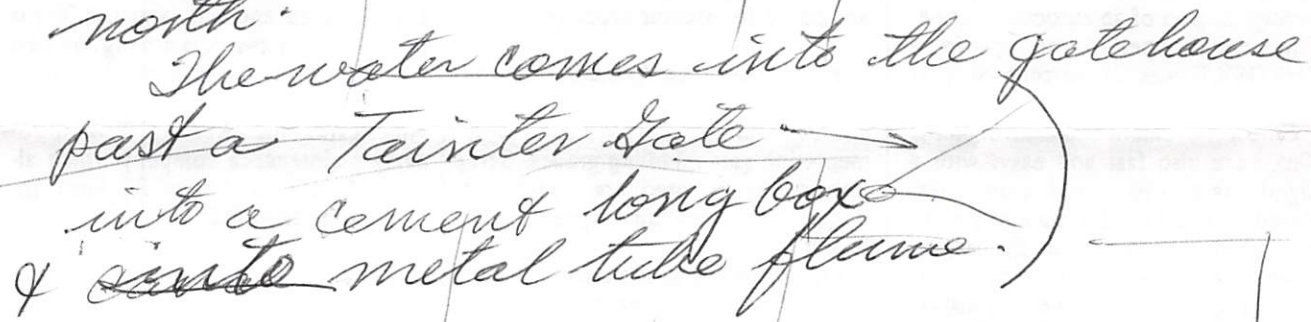 north.
The water comes into the gatehouse
past a Tainter Gate
into a cement long box
& into metal tube flume.